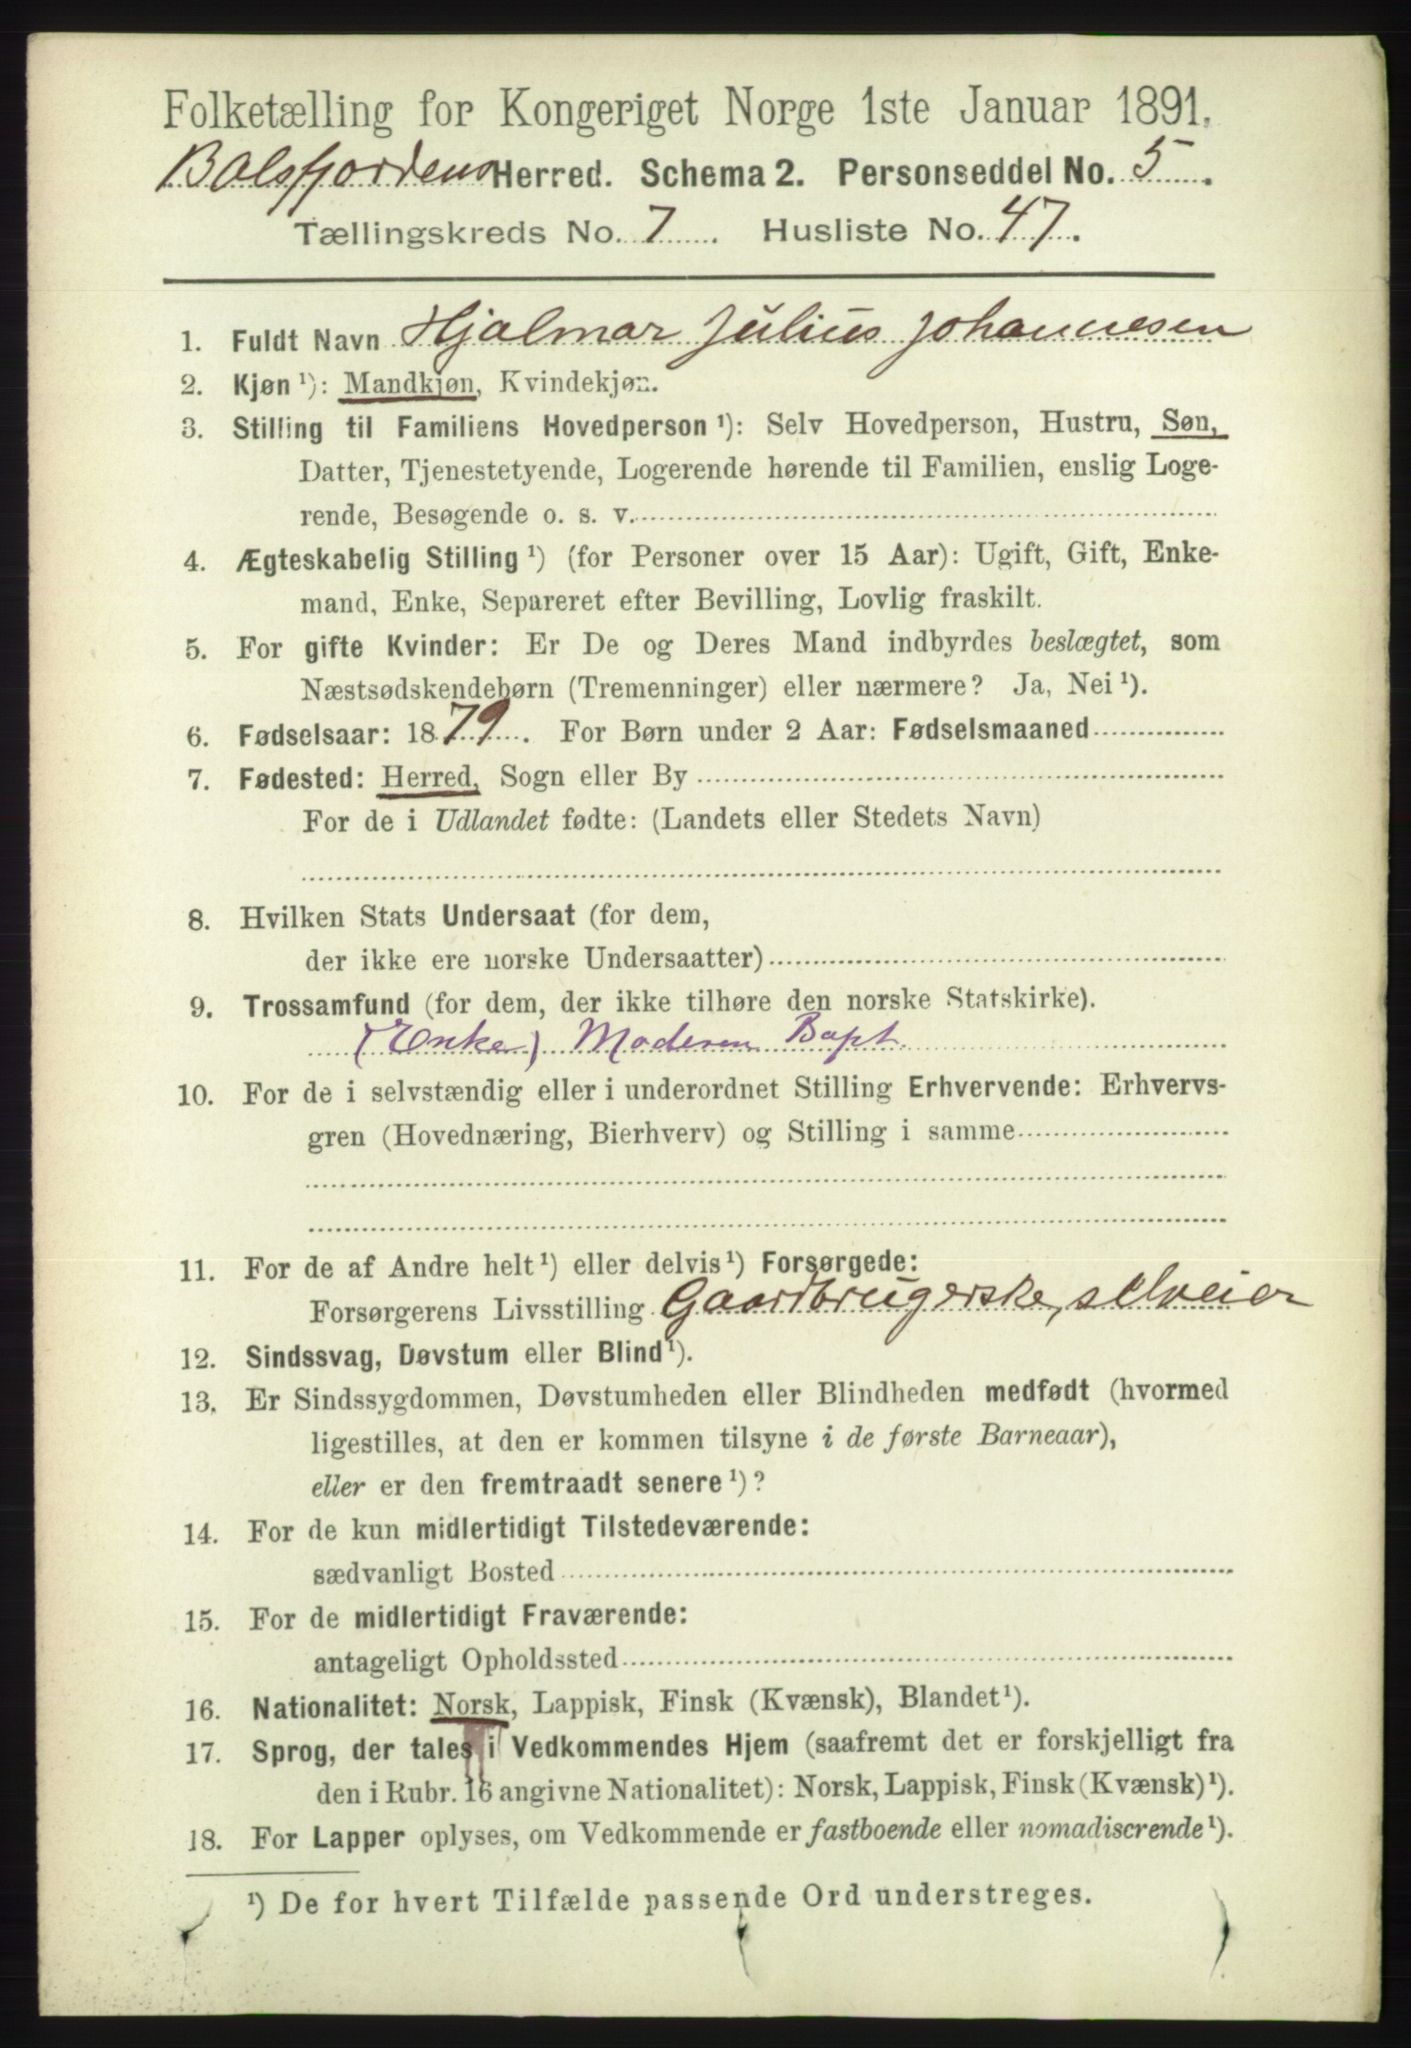 Folketælling for Kongeriget Norge 1ste Januar 1891.
Balsfjordens Herred. Schema 2. Personseddel No. 5.
Tællingskreds No. 7. Husliste No. 47.
1. Fuldt Navn Hjalmar Julius Johannesen
2. Kjøn ¹): Mandkjøn, Kvindekjøn.
3. Stilling til Familiens Hovedperson ¹): Selv Hovedperson, Hustru, Søn,
Datter, Tjenestetyende, Logerende hørende til Familien, enslig Loge-
rende, Besøgende o. s. v.
4. Ægteskabelig Stilling ¹) (for Personer over 15 Aar): Ugift, Gift, Enke-
mand, Enke, Separeret efter Bevilling, Lovlig fraskilt.
5. For gifte Kvinder: Er De og Deres Mand indbyrdes beslægtet, som
Næstsødskendebørn (Tremenninger) eller nærmere? Ja, Nei ¹).
6. Fødselsaar: 1879. For Børn under 2 Aar: Fødselsmaaned
7. Fødested: Herred, Sogn eller By
For de i Udlandet fødte: (Landets eller Stedets Navn)
8. Hvilken Stats Undersaat (for dem,
der ikke ere norske Undersaatter)
9. Trossamfund (for dem, der ikke tilhøre den norske Statskirke).
(Enke) Moderen Bapt.
10. For de i selvstændig eller i underordnet Stilling Erhvervende: Erhvervs-
gren (Hovednæring, Bierhverv) og Stilling i samme
11. For de af Andre helt ¹) eller delvis ¹) Forsørgede:
Forsørgerens Livsstilling Gaardbrugerske, selveier
12. Sindssvag, Døvstum eller Blind ¹).
13. Er Sindssygdommen, Døvstumheden eller Blindheden medfødt (hvormed
ligestilles, at den er kommen tilsyne i de første Barneaar),
eller er den fremtraadt senere ¹)?
14. For de kun midlertidigt Tilstedeværende:
sædvanligt Bosted
15. For de midlertidigt Fraværende:
antageligt Opholdssted
16. Nationalitet: Norsk, Lappisk, Finsk (Kvænsk), Blandet ¹).
17. Sprog, der tales i Vedkommendes Hjem (saafremt det er forskjelligt fra
den i Rubr. 16 angivne Nationalitet): Norsk, Lappisk, Finsk (Kvænsk) ¹).
18. For Lapper oplyses, om Vedkommende er fastboende eller nomadiserende ¹).
¹) De for hvert Tilfælde passende Ord understreges.